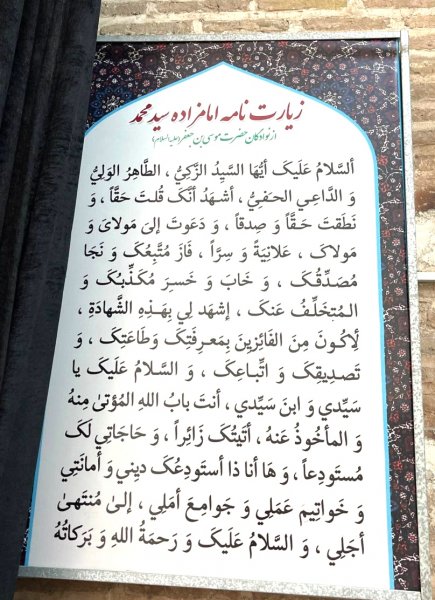 زیارت نامه امامزاده سید محمد
از نوادگان حضرت موسی بن جعفر (علیه السلام)
اَلسَّلامُ عَلَیکَ أَیُّهَا السَّیِّدُ الزَّکِيُّ ، الطَّاهِرُ الوَلِيُّ
وَ الدَّاعِي الحَفِيُّ ، أَشهَدُ أَنَّکَ قُلتَ حَقًّا ، وَ
نَطَقتَ حَقًّا وَ صِدقاً ، وَ دَعَوتَ إِلیٰ مَولايَ وَ
مَولاکَ ، عَلانِیَةً وَ سِرًّا ، فَازَ مُتَّبِعُکَ وَ نَجَا
مُصَدِّقُکَ ، وَ خَابَ وَ خَسِرَ مُکَذِّبُکَ وَ
المُتَخَلِّفُ عَنکَ ، إِشهَد لِي بِهَذِهِ الشَّهادَةِ ،
لِأَکُونَ مِنَ الفَائِزِینَ بِمَعرِفَتِکَ وَطَاعَتِکَ ، وَ
تَصدِیقِکَ وَ اتِّباعِکَ ، وَ السَّلامُ عَلَیکَ یا
سَیِّدي وَ ابنَ سَیِّدي ، أَنتَ بابُ اللهِ المُؤتیٰ مِنهُ
وَ المَأخُوذُ عَنهُ ، أَتَیتُکَ زَائِراً ، وَ حَاجَاتِي لَکَ
مُستَودِعاً ، وَ هَا أَنا ذا أَستَودِعُکَ دِیني وَ أَمانَتِي
وَ خَوَاتِیمَ عَمَلِي وَ جَوامِعَ أَمَلِي ، إِلیٰ مُنتَهیٰ
أَجَلِي ، وَ السَّلامُ عَلَیکَ وَ رَحمَةُ اللهِ وَ بَرَکاتُهُ